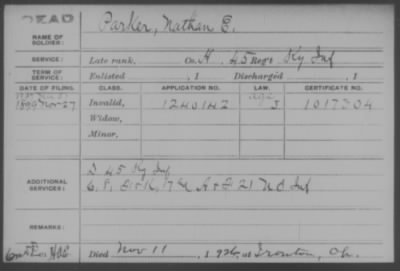 DEAD
NAME OF SOLDIER: Parker, Nathan E.
SERVICE: Late rank, Co. H. 45 Reg't Ky Inf
TERM OF SERVICE: Enlisted , 1 Discharged , 1
DATE OF FILING. CLASS. APPLICATION NO. LAW. CERTIFICATE NO.
1899 Nov-27 Invalid, 1240142 J 1017304
Widow,
Minor,
ADDITIONAL SERVICES: D 45 Ky Inf
21 Inf
REMARKS:
Died Nov 11, 1 at Ironton, Oh.